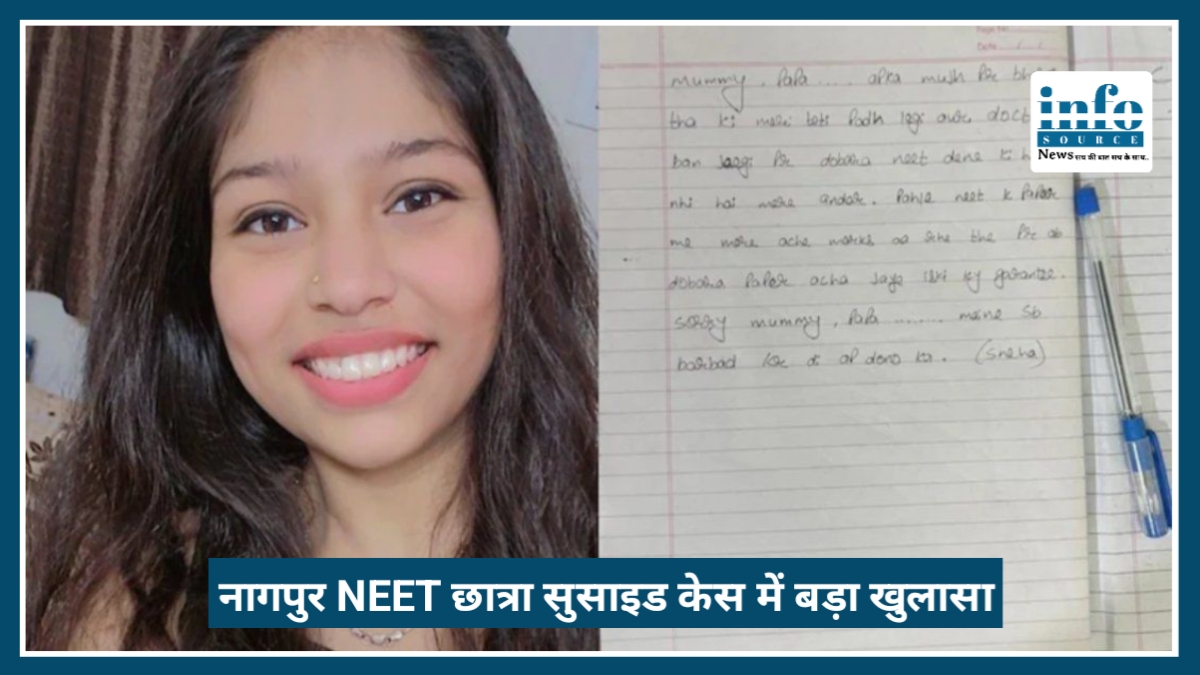 Page No.
Date / /
mummy, Papa .... apka mujh Pr
tha ki meri beti Padh legi aur
ban jaegi Pr dobara neet dene ki
nhi hai mere andar. Pahle neet k Paper
me mere ache marks aa rhe the Pr ab
dobara Paper acha jaye iski
sorry mummy, Papa ........ mene sb
barbad kr di ap dono ka. (Sneha)
info
SOURCE
News सच की बात सच के साथ..
नागपुर NEET छात्रा सुसाइड केस में बड़ा खुलासा